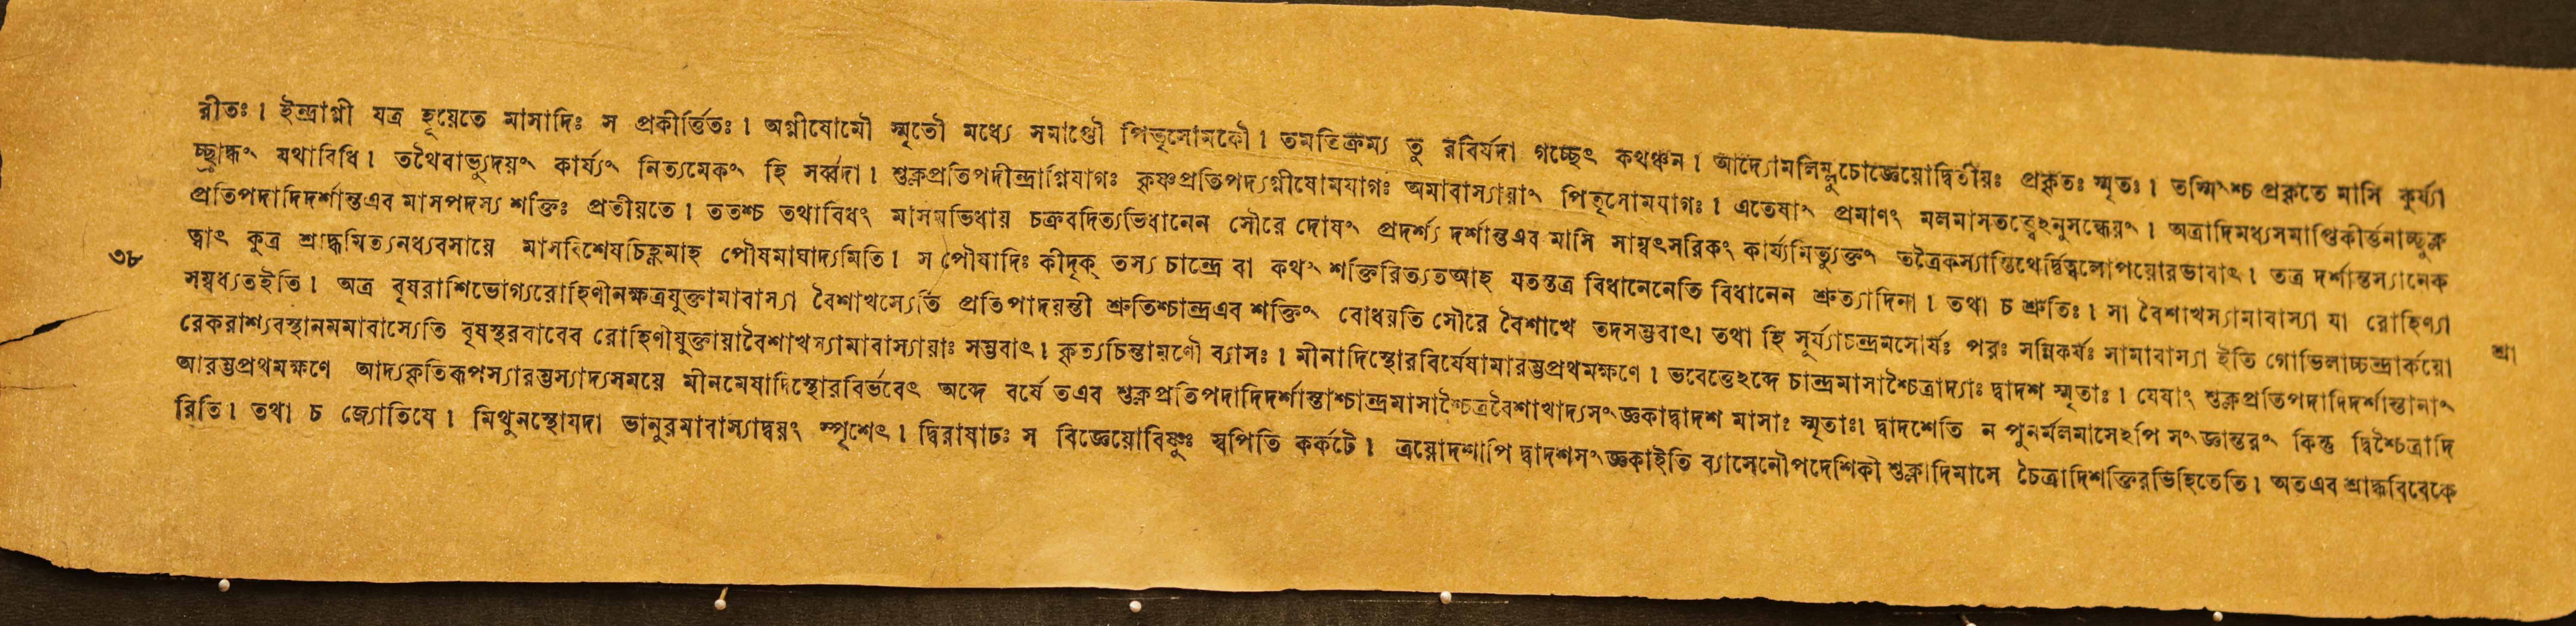 রীতঃ। ইন্দ্রাগ্নী যত্র হূয়েতে মাসাদিঃ স প্রকীর্ত্তিতঃ। অগ্নীষোমৌ স্মৃতৌ মধ্যে সমাপ্তৌ পিতৃসোমকৌ। তমতিক্রম্য তু রবির্যদা গচ্ছেৎ কথঞ্চন। আদ্যোমলিম্লুচোজ্ঞেয়োদ্বিতীয়ঃ প্রকৃতঃ স্মৃতঃ। তস্মিংশ্চ প্রকৃতে মাসি কুর্য্যা
চ্ছ্রাদ্ধং যথাবিধি। তথৈবাভ্যুদয়ং কার্য্যং নিত্যমেকং হি সর্ব্বদা। শুক্লপ্রতিপদীন্দ্রাগ্নিযাগঃ কৃষ্ণপ্রতিপদ্যগ্নীষোমযাগঃ অমাবাস্যায়াং পিতৃসোমযাগঃ। এতেষাং প্রমাণং মলমাসতত্ত্বেঽনুসন্ধেয়ং। অত্রাদিমধ্যসমাপ্তিকীর্ত্তনাচ্ছুক্ল
প্রতিপদাদিদর্শান্তএব মাসপদস্য শক্তিঃ প্রতীয়তে। ততশ্চ তথাবিধং মাসমভিধায় চক্রবদিত্যভিধানেন সৌরে দোষং প্রদর্শ্য দর্শান্তএব মাসি সাম্বৎসরিকং কার্য্যমিত্যুক্তং তত্রৈকস্যাস্তিথের্দ্বিত্বলোপয়োরভাবাৎ। তত্র দর্শান্তস্যানেক
ত্বাৎ কুত্র শ্রাদ্ধমিত্যনধ্যবসায়ে মাসবিশেষচিহ্নমাহ পৌষমাঘাদ্যমিতি। স পৌষাদিঃ কীদৃক্ তস্য চান্দ্রে বা কথং শক্তিরিত্যতআহ যতস্তত্র বিধানেনেতি বিধানেন শ্রুত্যাদিনা। তথা চ শ্রুতিঃ। সা বৈশাখস্যামাবাস্যা যা রোহিণ্যা
৩৮
সম্বধ্যতইতি। অত্র বৃষরাশিভোগ্যরোহিণীনক্ষত্রযুক্তামাবাস্যা বৈশাখস্যেতি প্রতিপাদয়ন্তী শ্রুতিশ্চান্দ্রএব শক্তিং বোধয়তি সৌরে বৈশাখে তদসম্ভবাৎ। তথা হি সূর্য্যাচন্দ্রমসোর্যঃ পরঃ সন্নিকর্ষঃ সামাবাস্যা ইতি গোভিলাচ্চন্দ্রার্কয়ো
শ্রা
রেকরাশ্যবস্থানমমাবাস্যেতি বৃষস্থরবাবেব রোহিণীযুক্তায়াবৈশাখস্যামাবাস্যায়াঃ সম্ভবাৎ। কৃত্যচিন্তামণৌ ব্যাসঃ। মীনাদিস্থোরবির্যেষামারম্ভপ্রথমক্ষণে। ভবেত্তেঽব্দে চান্দ্রমাসাশ্চৈত্রাদ্যাঃ দ্বাদশ স্মৃতাঃ। যেষাং শুক্লপ্রতিপদাদিদর্শান্তানাং
আরম্ভপ্রথমক্ষণে আদ্যকৃতিরূপস্যারম্ভস্যাদ্যসময়ে মীনমেষাদিস্থোরবির্ভবেৎ অব্দে বর্ষে তএব শুক্লপ্রতিপদাদিদর্শান্তাশ্চান্দ্রমাসাশ্চৈত্রবৈশাখাদ্যসংজ্ঞকাদ্বাদশ মাসাঃ স্মৃতাঃ। দ্বাদশেতি ন পুনর্মলমাসেঽপি সংজ্ঞান্তরং কিন্তু দ্বিশ্চৈত্রাদি
রিতি। তথা চ জ্যোতিষে। মিথুনস্থোযদা ভানুরমাবাস্যাদ্বয়ং স্পৃশেৎ। দ্বিরাষাঢঃ স বিজ্ঞেয়োবিষ্ণুঃ স্বপিতি কর্কটে। ত্রয়োদশাপি দ্বাদশসংজ্ঞকাইতি ব্যাসেনৌপদেশিকী শুক্লাদিমাসে চৈত্রাদিশক্তিরভিহিতেতি। অতএব শ্রাদ্ধবিবেকে